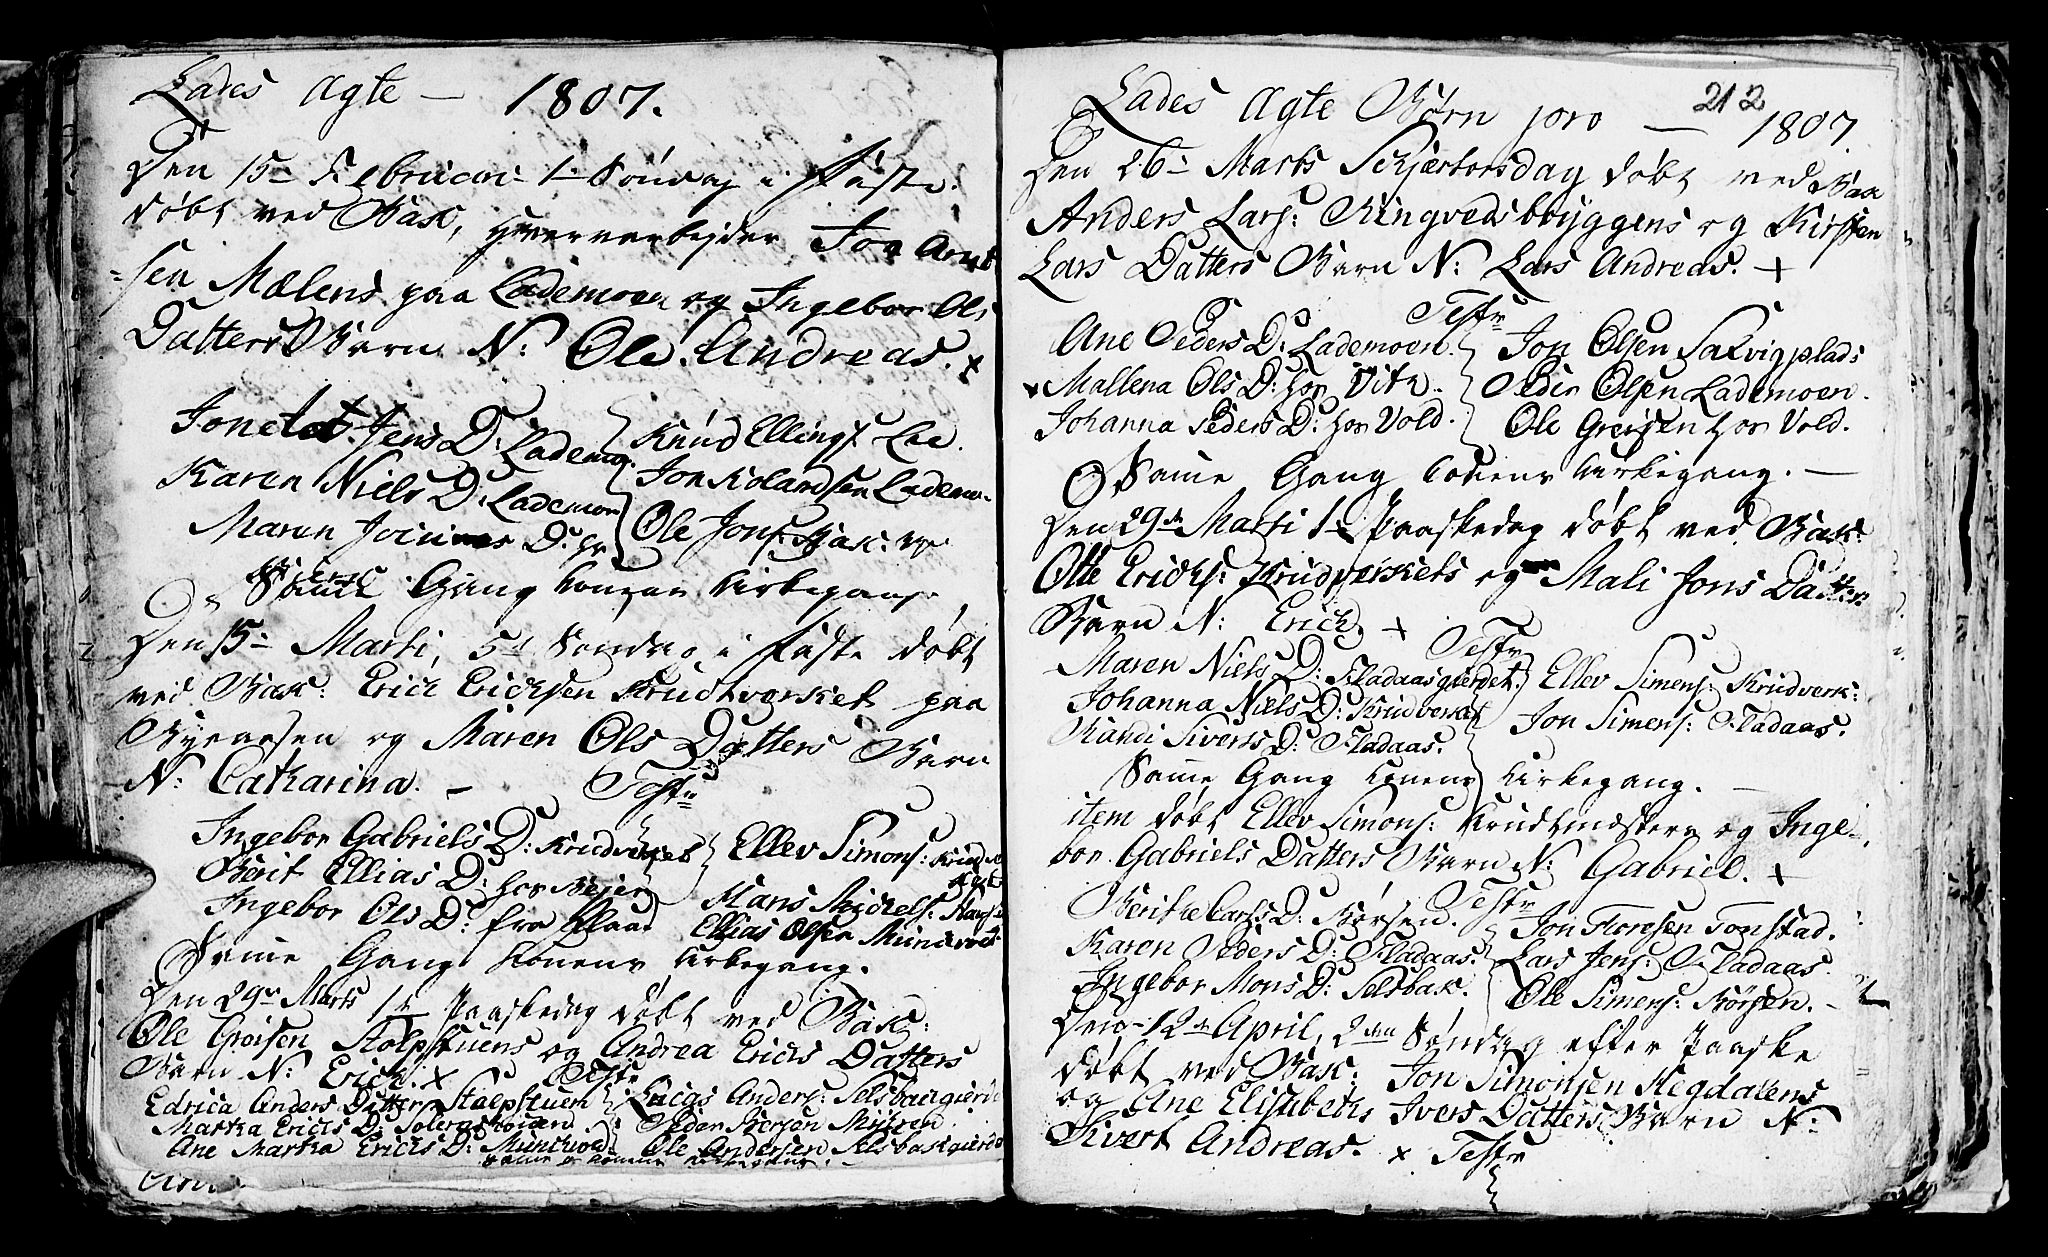 Lades Ægte — 1807.
Den 15– Februari 1– Søndag i Faste
døbt ved Bak, Hververarbejder Joa Arnt
=sen Mælens paa Lademoen og Ingebor Ols
Datters Barn N: Ole Andreas. x
Jens D: Lademo. Knud Ellings: Lee.
Karen Niels D: Lademoen Jon Rolandsen Lademo.
Maren D: Ole Jons: Bak:
Same Gang Konens Kirkegang,
Den 15– Marti, 5t Søndag i Faste døbt
ved Bak: Erich Erichsen Krudtværket paa
Byeaasen og Maren Ols Datters Barn
N: Catharina. – Testr
Ingebor Gabriels D: Krudtværket Ellev Simons:
Berit Ellias D: hos Beier Hans Michels:
Ingebor Ols D: fra Ellias Olsen
Same Gang Konens Kirkegang.
Den 29de Marts 1te Paaskedag døbt ved Bak:
Ole Grøisen Stolpstuens og Andrea Erichs Datters
Barn N: Erich. x Testr
Edrica Anders Datter Stolpstuen Lucas Anders: Selsbakgierd
Martha Erichs D: Peder Børsen
Ane Martha Erichs D: Munchvold Ole Andersen Selsbakgierd
Same g Konens Kirkegang. –
212
Lades Ægte Børn pro — 1807
Den 26– Marts Schjærtorsdag døbt ved Bak
Anders Lars: Ringvedsbryggens og Kirsten
Lars Datters Barn N: Lars Andreas. +
Testr
Ane Peders D: Lademoen. Jon Olsen Salvigplads
x Mallena Ols D: hos Vith. Peder Olsen Lademoen.
Johanna Peders D: hos Vold. Ole Greisen hos Vold.
Same Gang Konens Kirkegang. —
Den 29de Marti 1te Paaskedag døbt ved Bak:
Otte Erichs: Krudtværkets og Mali Jons Datters
Barn N: Erich. + Testr
Maren Niels D: Fladaasgierdet. Ellev Simens: Krudværk:
Johanna Niels D: Krudværket Jon Simens: Fladaas.
Randi Siverts D: Fladaas.
Same Gang Konens Kirkegang. —
item døbt Ellev Simons: Krudtmæsters og Inge=
bor Gabriels Datters Barn N: Gabriel. +
Testr
Berithe Carls D: Børsen. Jon Floresen Tonstad.
Karen Peders D: Fladaas. Lars Jens: Fladaas.
Ingebor Mons D: Selsbak. Ole Simens: Børsen. –
Den 12te April, 2den Søndag efter Paaske
døbt ved Bak: Jon Simonsen Hegdalens
og Ane Elisabeths Ivers Datters Barn N:
Sivert Andreas. x Testr